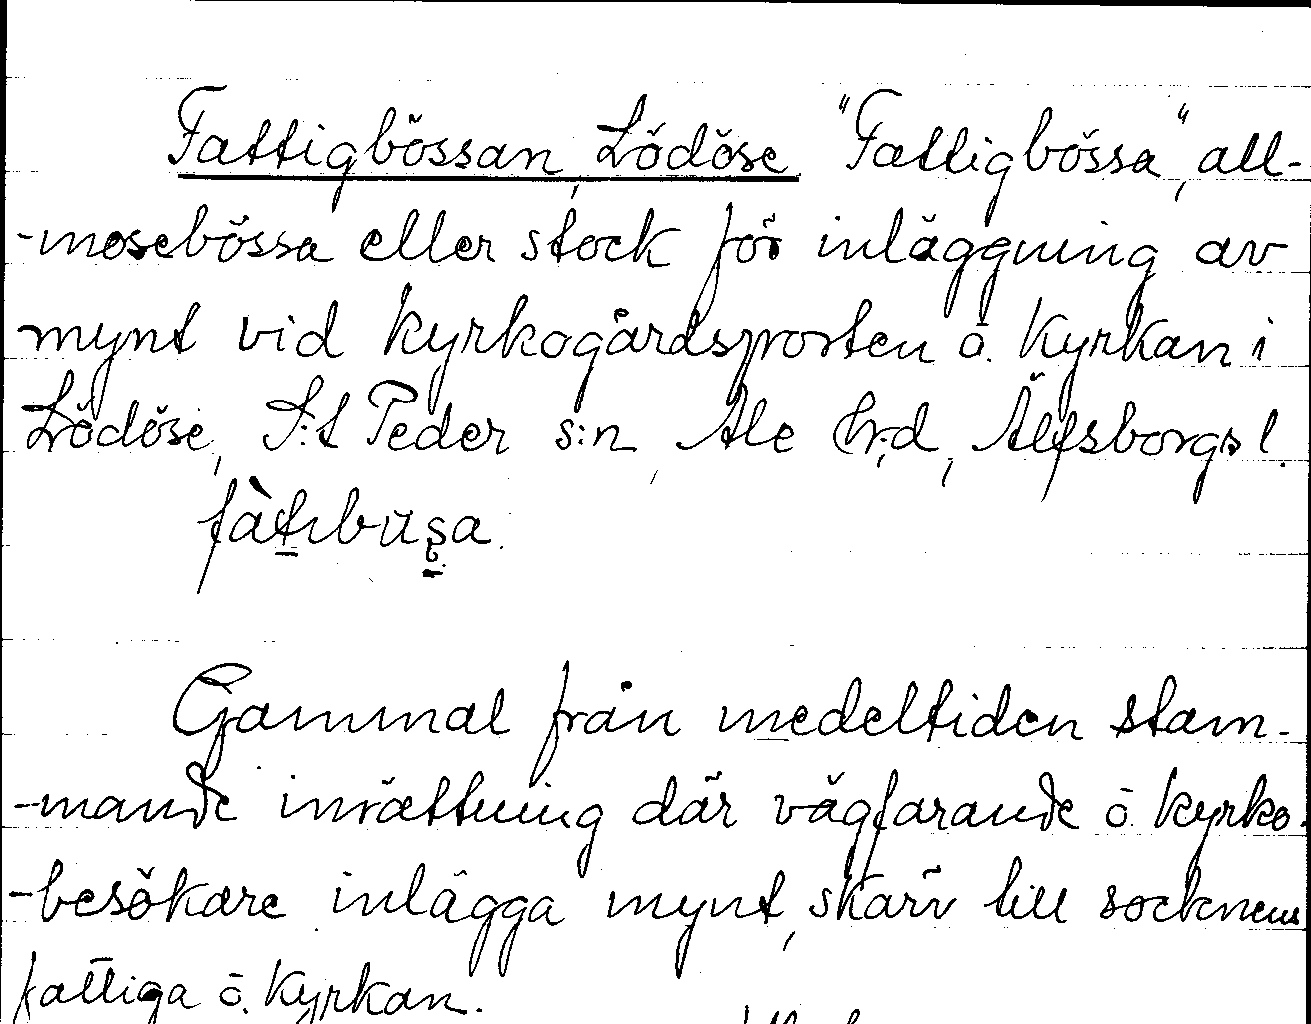 Fattigbössan, Lödöse "Fattigbössa", all-
-mosebössa eller stock för inläggning av
mynt vid kyrkogårdsporten ō. kyrkan i
Lödöse, S:t Peder s:n, Ale hr;d, Älfsborgs l.
fàtıbüsa.
Gammal från medeltiden stam-
-mande inrättning där vägfarande ō. kyrko-
-besökare inlägga mynt, skärv till socknens
fattiga ō. kyrkan.